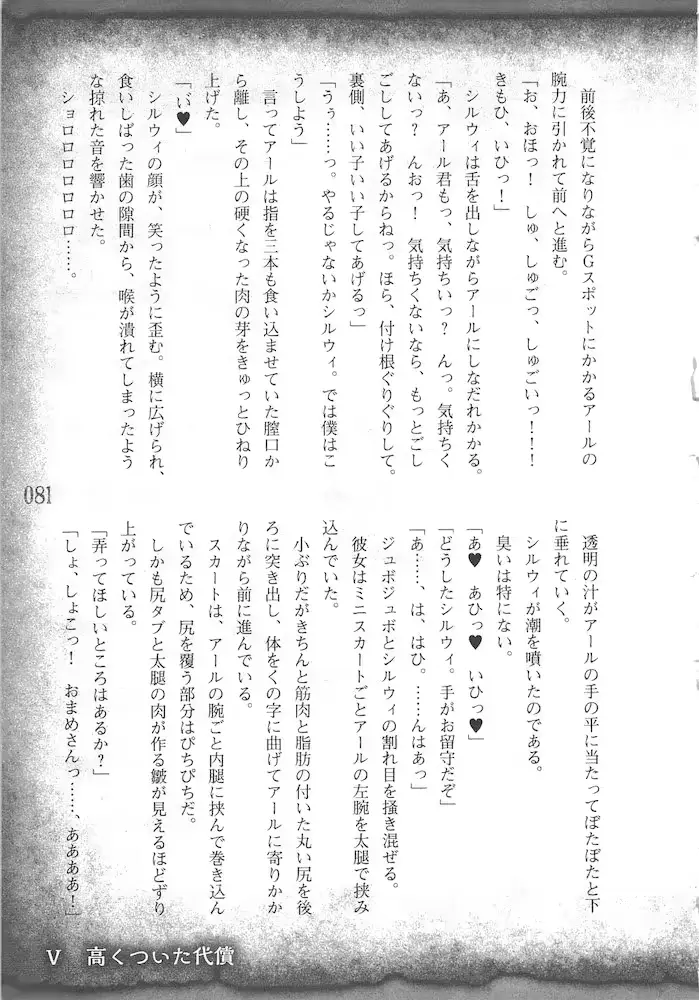 前後不覚になりながらGスポットにかかるアールの
腕力に引かれて前へと進む。
「お、おほっ！　しゅ、しゅごっ、しゅごいっ！！！
きもひ、いひっ！」
シルウィは舌を出しながらアールにしなだれかかる。
「あ、アール君もっ、気持ちいっ？　んっ。気持ちく
ないっ？　んおっ！　気持ちくないなら、もっとごし
ごししてあげるからねっ。ほら、付け根ぐりぐりして。
裏側、いい子いい子してあげるっ」
「うぅ……っ。やるじゃないかシルウィ。では僕はこ
うしよう」
言ってアールは指を三本も食い込ませていた膣口か
ら離し、その上の硬くなった肉の芽をきゅっとひねり
上げた。
「い゛♥」
シルウィの顔が、笑ったように歪む。横に広げられ、
食いしばった歯の隙間から、喉が潰れてしまったよう
な掠れた音を響かせた。
ショロロロロロロロ……。
透明の汁がアールの手の平に当たってぽたぽたと下
に垂れていく。
シルウィが潮を噴いたのである。
臭いは特にない。
「あ♥　あひっ♥　いひっ♥」
「どうしたシルウィ。手がお留守だぞ」
「あ……、は、はひ。……んはぁっ」
ジュボジュボとシルウィの割れ目を掻き混ぜる。
彼女はミニスカートごとアールの左腕を太腿で挟み
込んでいた。
小ぶりだがきちんと筋肉と脂肪の付いた丸い尻を後
ろに突き出し、体をくの字に曲げてアールに寄りかか
りながら前に進んでいる。
スカートは、アールの腕ごと内腿に挟んで巻き込ん
でいるため、尻を覆う部分はぴちぴちだ。
しかも尻タブと太腿の肉が作る皺が見えるほどずり
上がっている。
「弄ってほしいところはあるか？」
「しょ、しょこっ！　おまめさんっ……、ああああ！」
081
V　高くついた代償